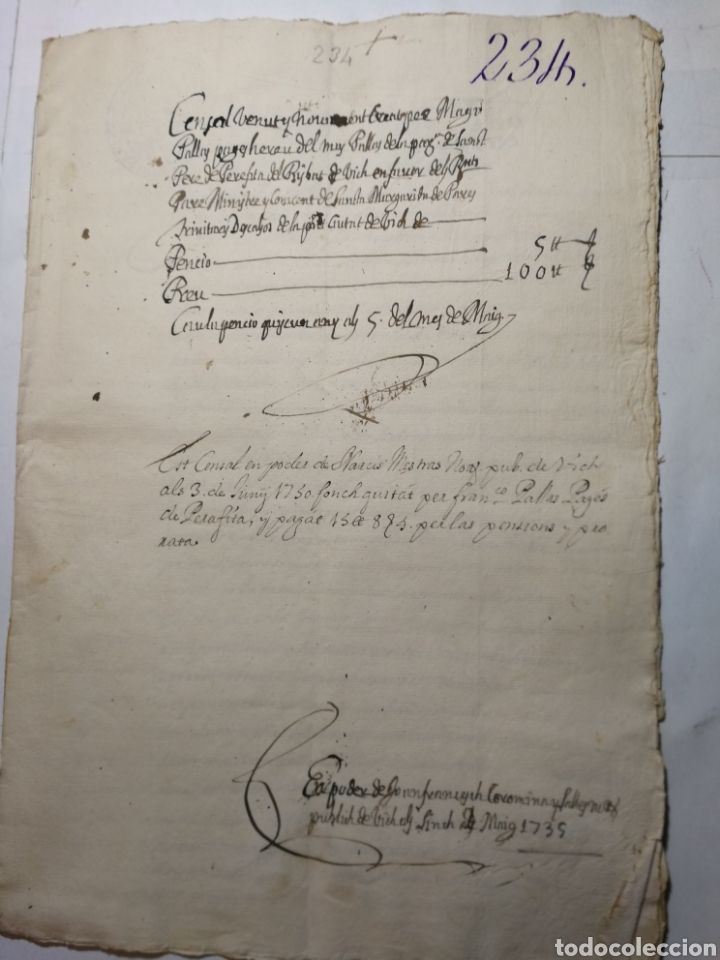 234
234.
Censal venut y novament creat per Magí
Pallas pages hereu del mas Pallas de la parª. de Sant
Pere de Perafita del Bisbat de Vich en favor dels
Pare Ministre y Convent de Santa Margarita de Pares
Trinitaris Descalsos de la pñt Ciutat de Vich de
Pencio 5 tt
Preu 100 tt
Cau la pencio quiscun any als 5. del mes de Maig
Est Censal en poder de Narcis Mestras Noty. pub. de Vich
als 3. de Juny 1750 fonch quitat per fran.co Pallas Pagés
de Perafita, y pagat 15 tt 8 s 4. per las pensions y pro
rata
En poder de Joan francesch Coromina y
publich de Vich als sinch de Maig 1735
todocoleccion